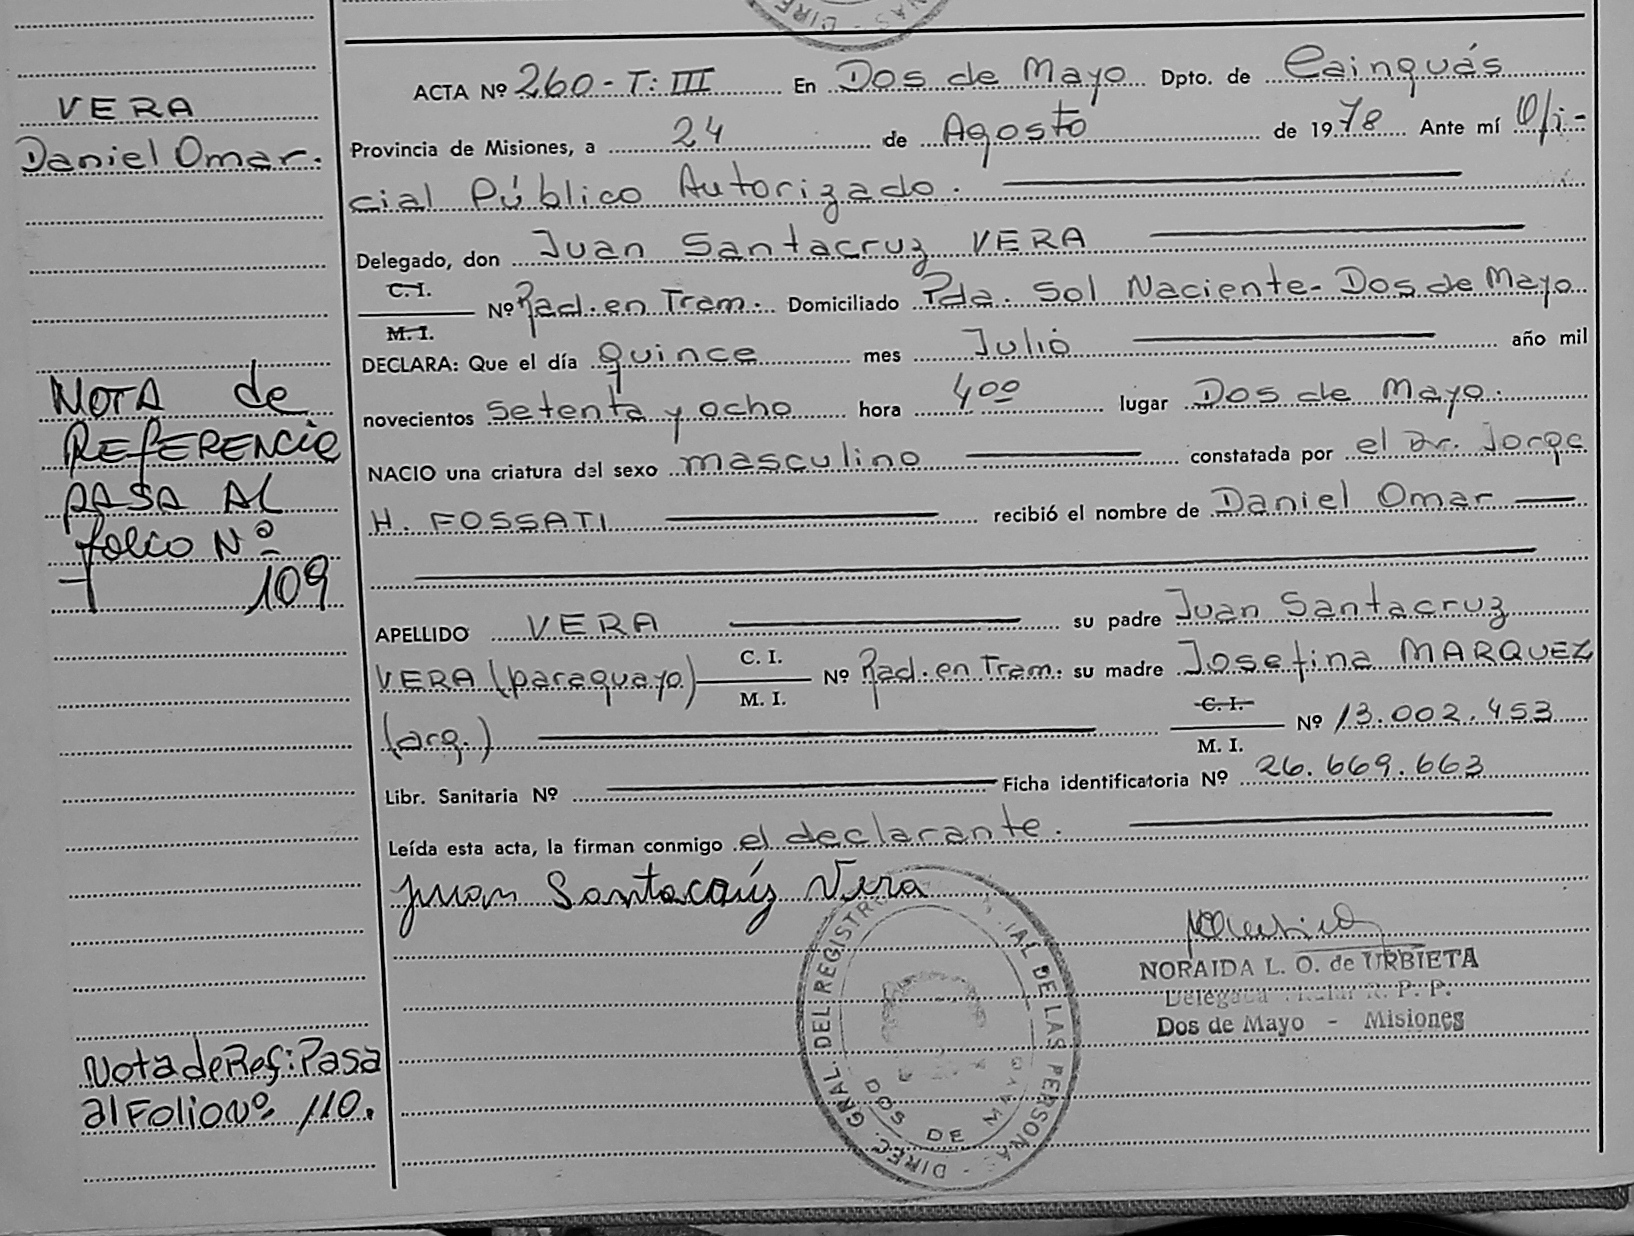 VERA
Daniel Omar.
NOTA de
REFERENCIA
PASA AL
folio Nº
109
Nota de Ref: Pasa
al Folio Nº 110.
ACTA Nº 260 - T: III En Dos de Mayo Dpto. de Cainguás
Provincia de Misiones, a 24 de Agosto de 1978 Ante mí Ofi-
cial Público Autorizado.
Delegado, don Juan Santacruz VERA
C. I.
M. I.
Nº Rad. en Tram. Domiciliado Pda. Sol Naciente - Dos de Mayo
DECLARA: Que el día quince mes Julio año mil
novecientos setenta y ocho hora 4 00 lugar Dos de Mayo.
NACIO una criatura del sexo masculino constatada por el Dr. Jorge
H. FOSSATI recibió el nombre de Daniel Omar
APELLIDO VERA su padre Juan Santacruz
VERA (paraguayo) C. I. M. I. Nº Rad. en Tram. su madre Josefina MARQUEZ
(arg.) C. I. M. I. Nº 13.002.453
Libr. Sanitaria Nº Ficha identificatoria Nº 26.669.663
Leída esta acta, la firman conmigo el declarante.
Juan Santacrúz Vera
NORAIDA L. O. de URBIETA
Delegada Titular R. P. P.
Dos de Mayo - Misiones
DIREC. GRAL. DEL REGISTR IAL DE LAS PERSONAS
DOS DE MAYO